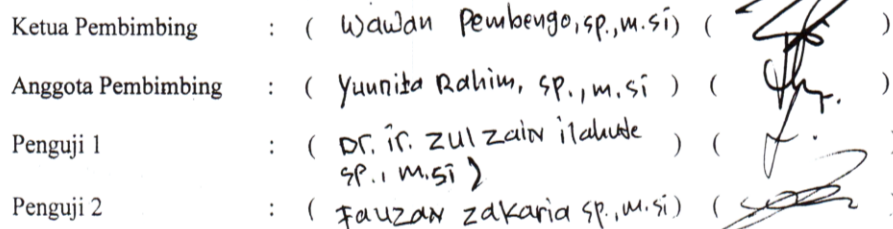 Ketua Pembimbing : ( Wawan Pembengo, sp., m.si) ( )
Anggota Pembimbing : ( Yuunita Rahim, sp., m.si ) ( )
Penguji 1 : ( Dr. ir. Zulzain ilahude ) ( )
sp., m.si )
Penguji 2 : ( Fauzan zakaria sp., m.si) ( )